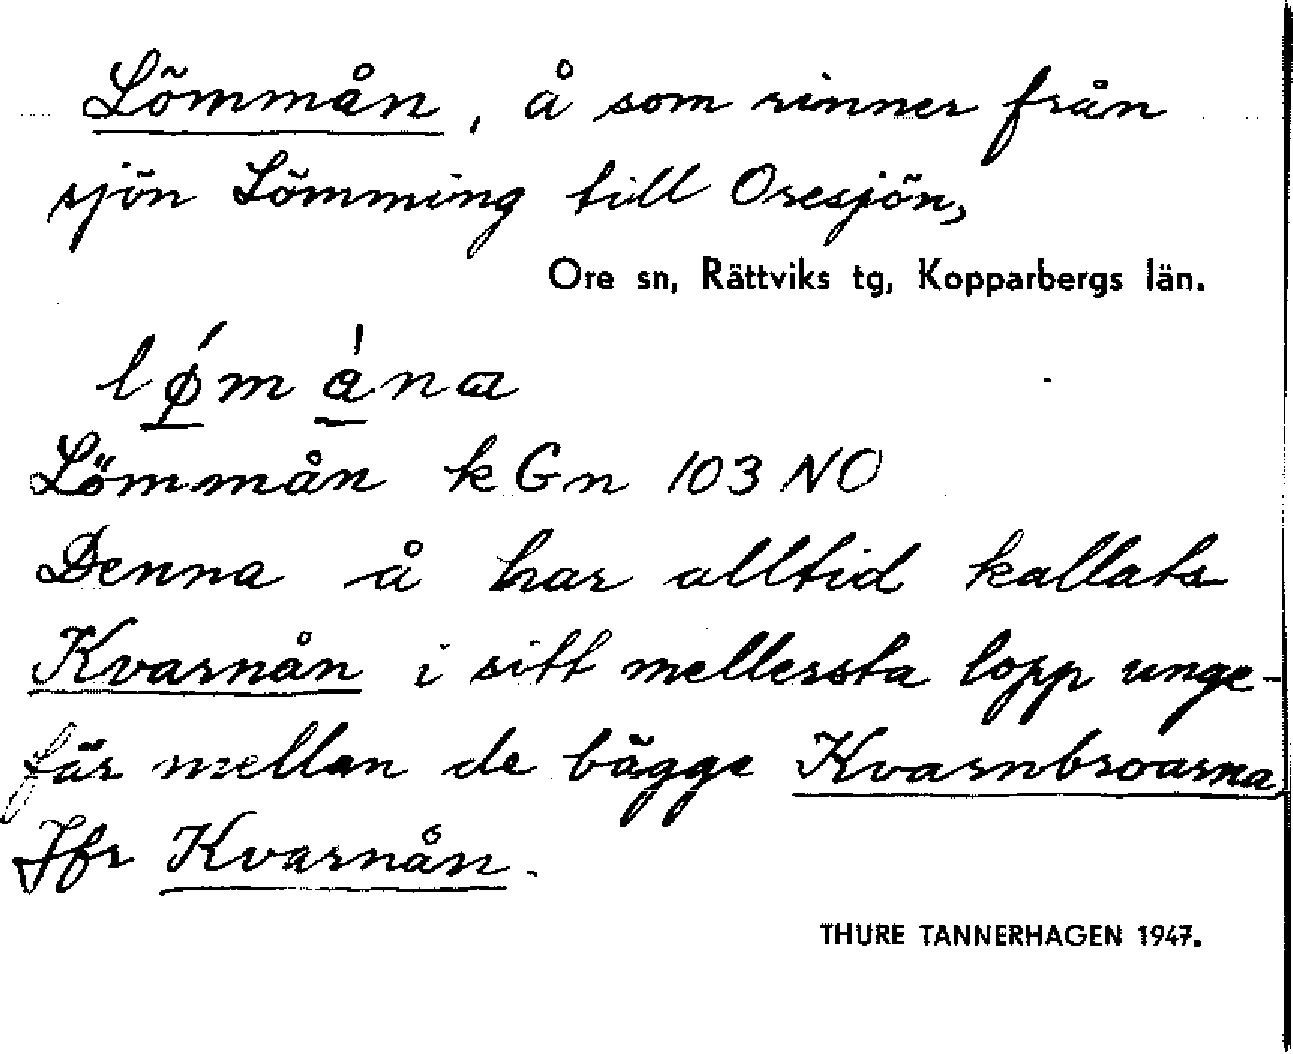 Lömmån, å som rinner från
sjön Lömming till Oresjön,
Ore sn, Rättviks tg, Kopparbergs län.
Lömmån k Gn 103 NO
Denna å har alltid kallats
Kvarnån i sitt mellersta lopp unge-
fär mellan de bägge Kvarnbroarna
Jfr Kvarnån.
THURE TANNERHAGEN 1947.